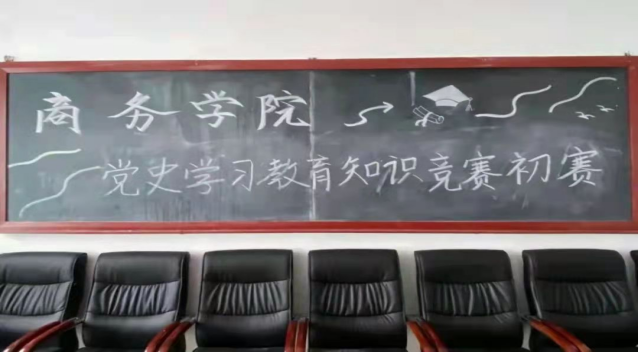 商务学院
党史学习教育知识竞赛初赛